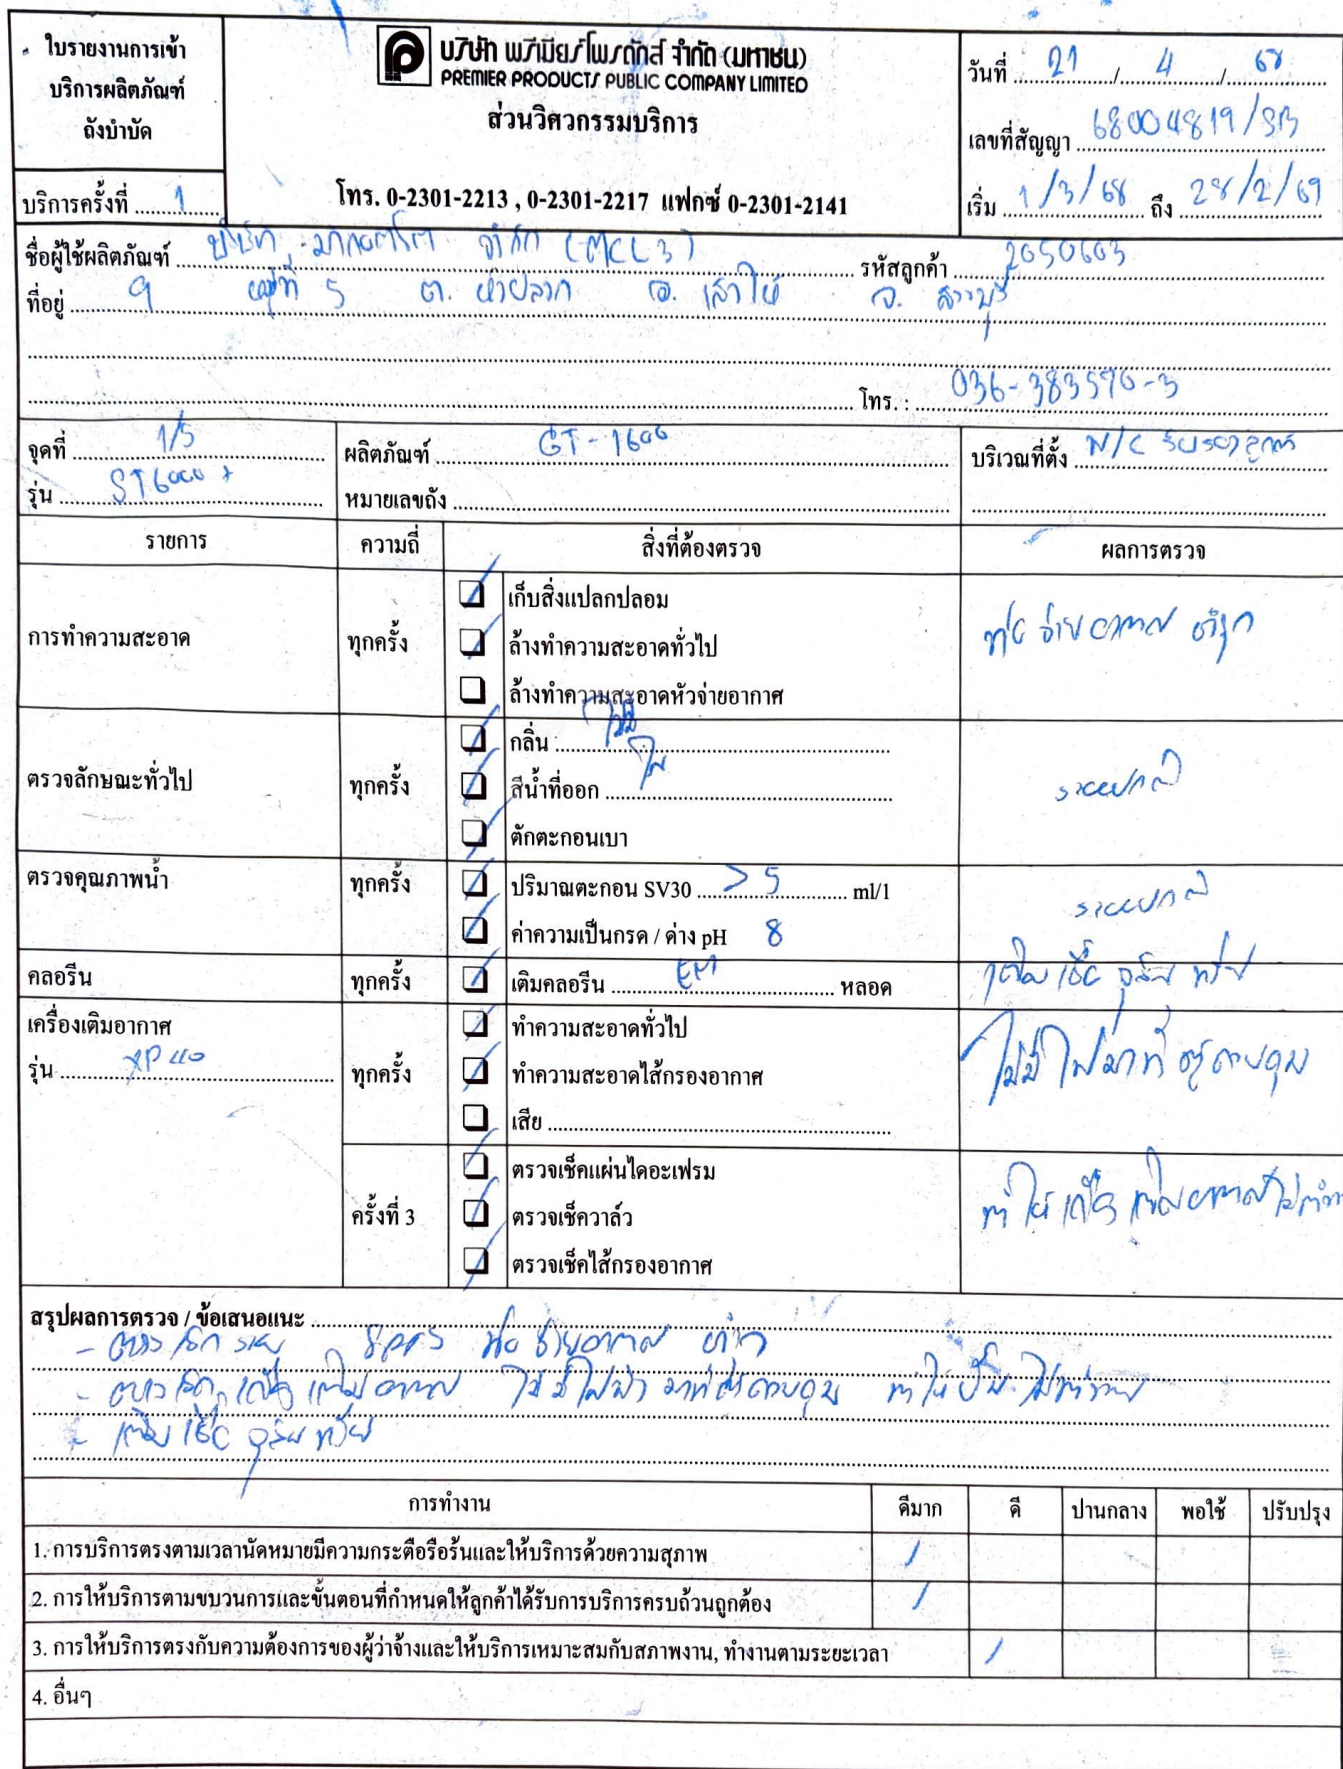 ใบรายงานการเข้า
บริการผลิตภัณฑ์
ถังบำบัด
บริการครั้งที่ 1
บริษัท พรีเมียร์โพรดักส์ จำกัด (มหาชน)
PREMIER PRODUCTS PUBLIC COMPANY LIMITED
ส่วนวิศวกรรมบริการ
โทร. 0-2301-2213 , 0-2301-2217 แฟกซ์ 0-2301-2141
วันที่ 21 / 4 / 68
เลขที่สัญญา 68004819/SB
เริ่ม 1/3/68 ถึง 28/2/69
ชื่อผู้ใช้ผลิตภัณฑ์ บริษัท จำกัด รหัสลูกค้า 2050603
ที่อยู่ 9 หมู่ที่ 5 ต. ห้วยปลาก อ. เสาไห้ จ. สระบุรี
โทร. : 036-383570-3
จุดที่ 1/5
รุ่น ST6000 +
ผลิตภัณฑ์ GT-1600
หมายเลขถัง
บริเวณที่ตั้ง
รายการ ความถี่ สิ่งที่ต้องตรวจ ผลการตรวจ
การทำความสะอาด ทุกครั้ง
เก็บสิ่งแปลกปลอม
ล้างทำความสะอาดทั่วไป
ล้างทำความสะอาดหัวจ่ายอากาศ
ท่อจ่ายอากาศ ชำรุด
ตรวจลักษณะทั่วไป ทุกครั้ง
กลิ่น ไม่มี
สีน้ำที่ออก ใส
ตักตะกอนเบา
ระบบปกติ
ตรวจคุณภาพน้ำ ทุกครั้ง
ปริมาณตะกอน SV30 > 5 ml/1
ค่าความเป็นกรด / ด่าง pH 8
ระบบปกติ
คลอรีน ทุกครั้ง เติมคลอรีน EM หลอด เติมเชื้อ จุลินทรีย์
เครื่องเติมอากาศ
รุ่น XP 40 ทุกครั้ง
ทำความสะอาดทั่วไป
ทำความสะอาดไส้กรองอากาศ
เสีย
ไม่มีไฟมาที่ ตู้ควบคุม
ครั้งที่ 3
ตรวจเช็คแผ่นไดอะเฟรม
ตรวจเช็ควาล์ว
ตรวจเช็คไส้กรองอากาศ
ทำให้ เครื่อง เติมอากาศไม่ทำงาน
สรุปผลการตรวจ / ข้อเสนอแนะ
- ตรวจเช็ค ระบบ ท่อจ่ายอากาศ ชำรุด
- ตรวจเช็ค เครื่อง เติมอากาศ ไม่มีไฟฟ้า มาที่ตู้ควบคุม ทำให้ปั๊มไม่ทำงาน
- เติมเชื้อ จุลินทรีย์
การทำงาน ดีมาก ดี ปานกลาง พอใช้ ปรับปรุง
1. การบริการตรงตามเวลานัดหมายมีความกระตือรือร้นและให้บริการด้วยความสุภาพ /
2. การให้บริการตามขบวนการและขั้นตอนที่กำหนดให้ลูกค้าได้รับการบริการครบถ้วนถูกต้อง /
3. การให้บริการตรงกับความต้องการของผู้ว่าจ้างและให้บริการเหมาะสมกับสภาพงาน, ทำงานตามระยะเวลา /
4. อื่นๆ